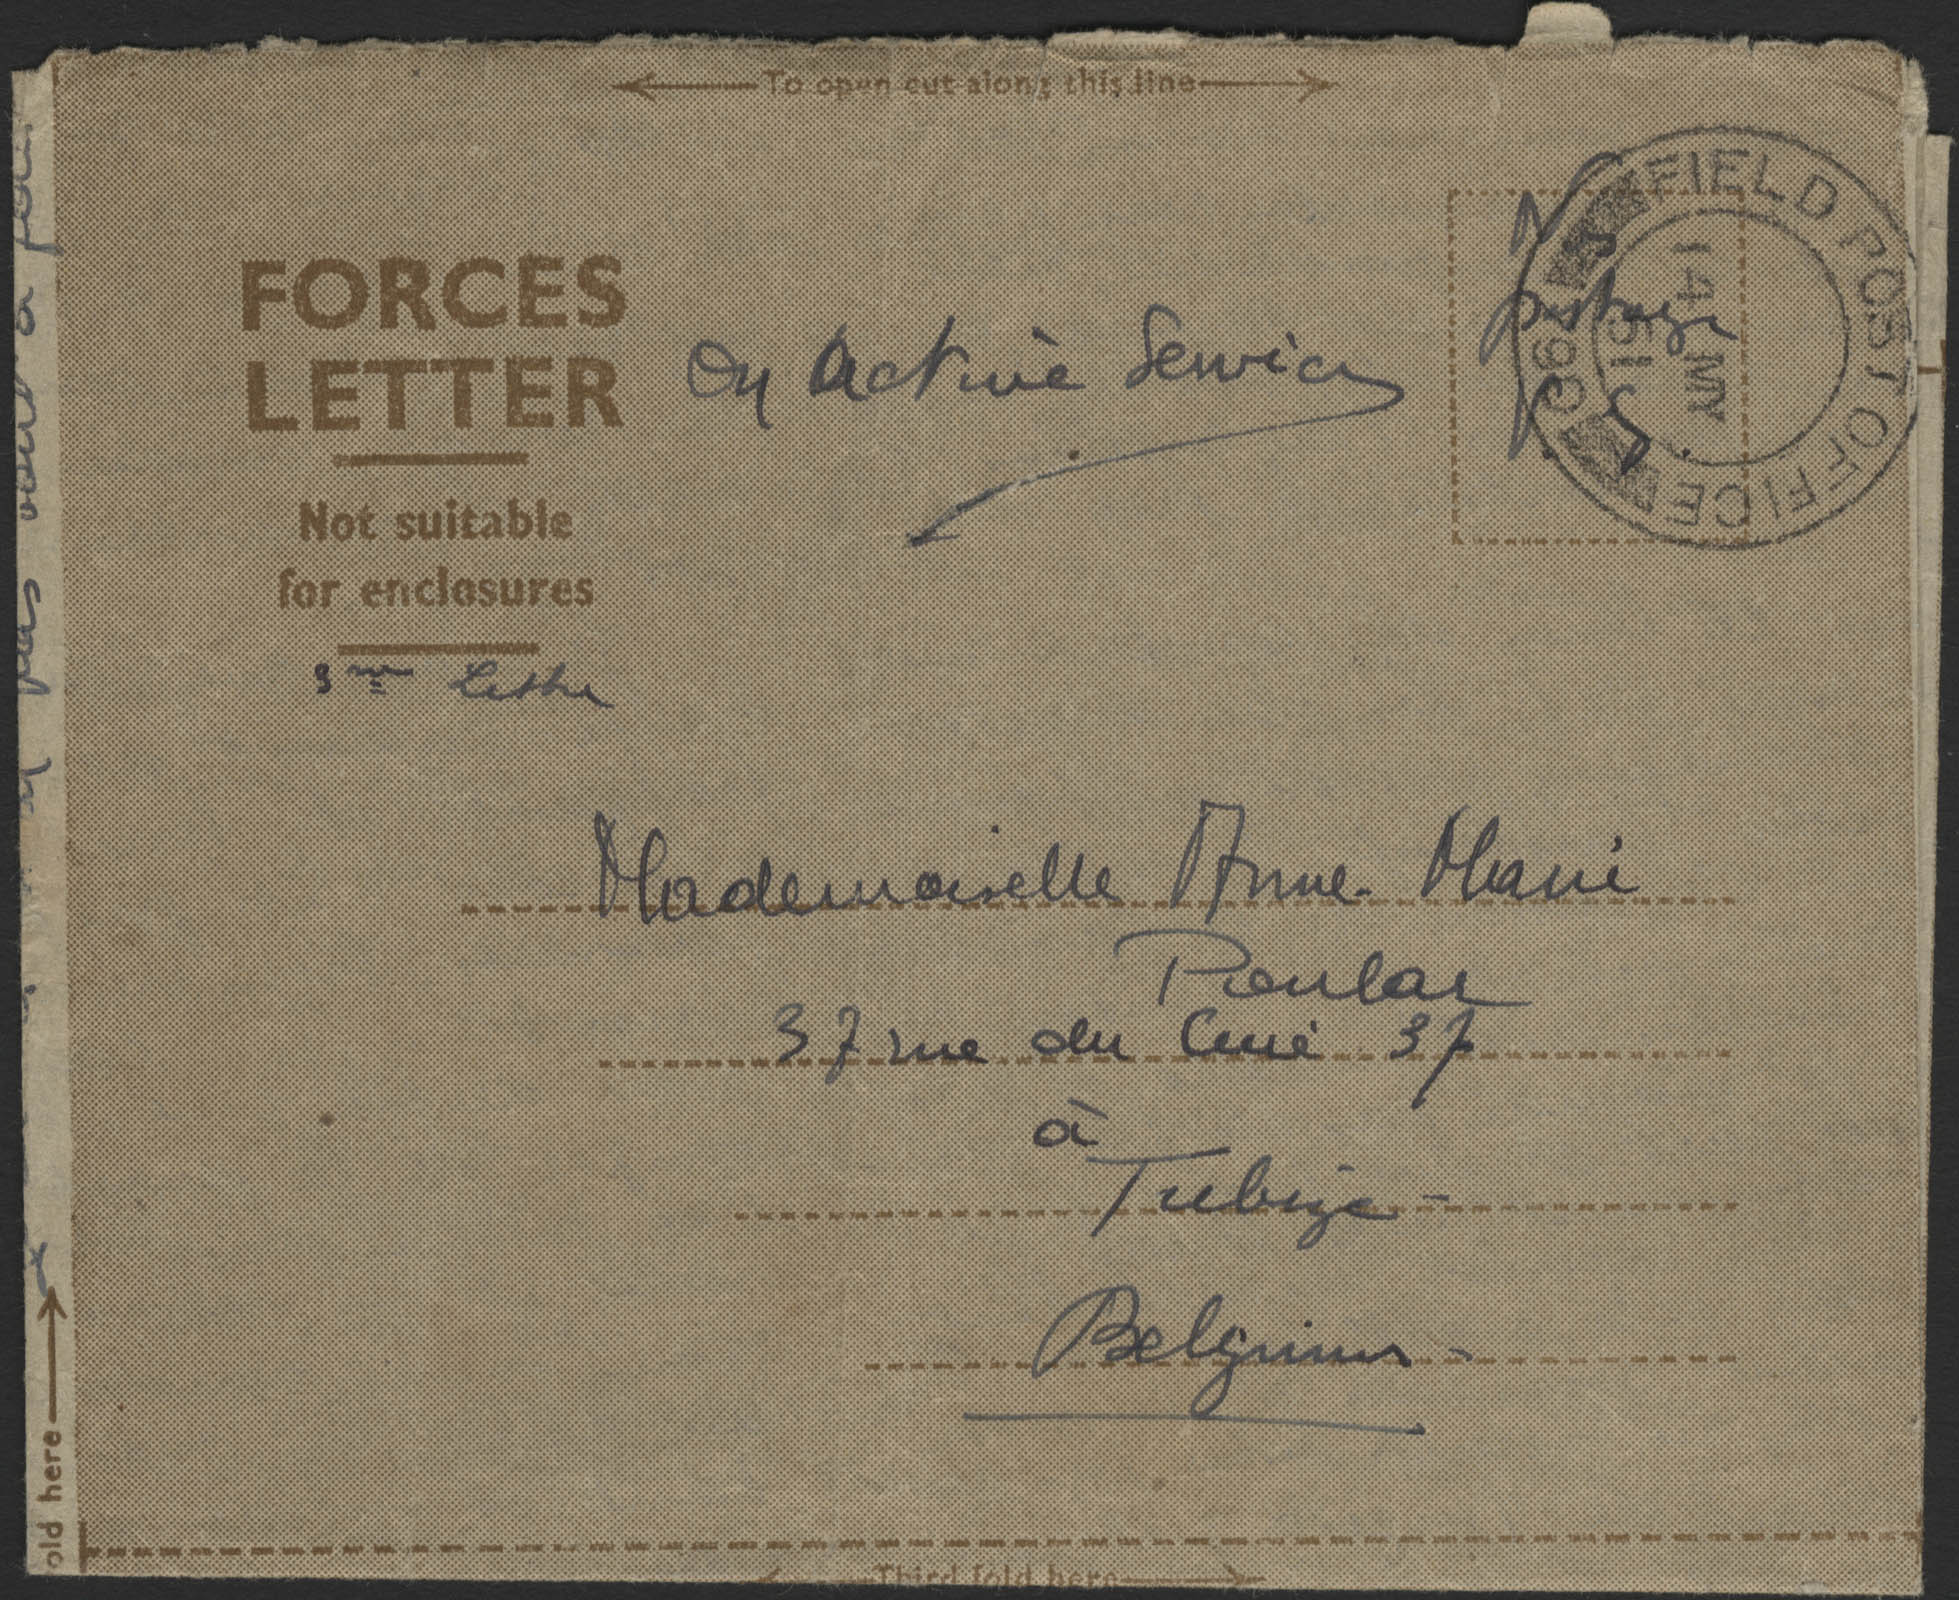 To open cut along this line
FORCES
LETTER
Not suitable
for enclosures
On Active Service
postage
FIELD POST OFFICE
14 MY
51
3me Lettre
Mademoiselle Anne-Marie
37 rue du Curé 37
à
Tubize -
Belgium -
old here
Third fold here